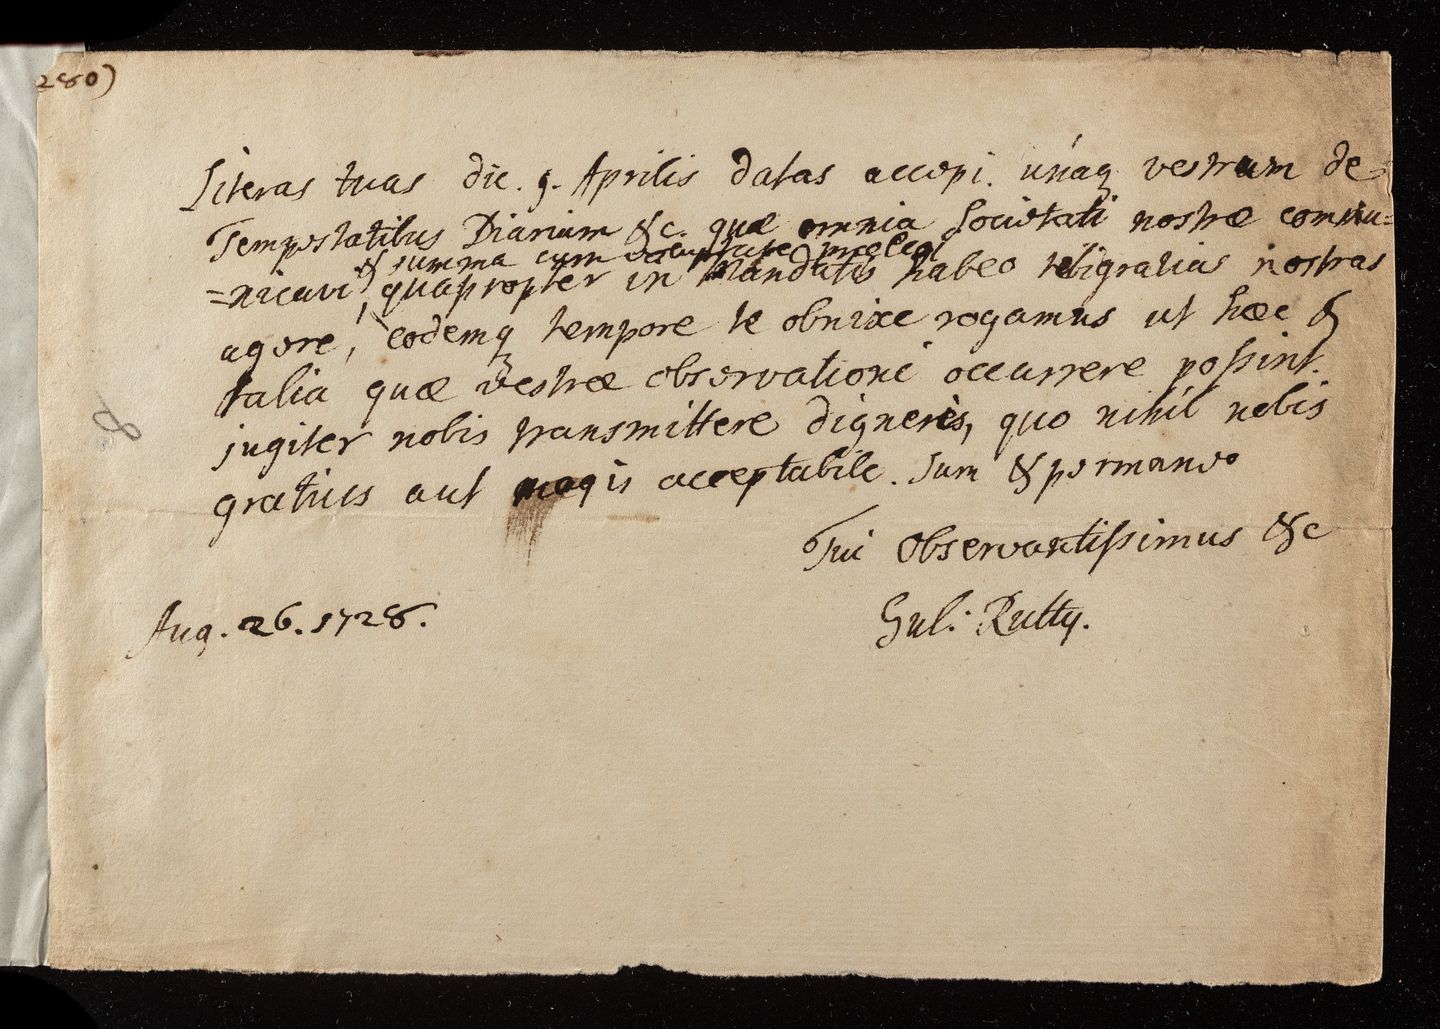 280)
Literas tuas die. 9. Aprilis datas accepi. unaq vestrum de
Tempestatibus Diarium &c. quæ omnia Societati nostræ commu=
& summa cum voluptate prælegi
=nicavi, quapropter in Mandatis habeo tibi gratias nostras
agere, eodemq tempore te obnixe rogamus ut hæc &
talia quæ vestræ observationi occurrere possint.
jugiter nobis transmittere digneris, quo nihil nobis
gratius aut magis acceptabile. Sum & permaneo
Tui Observantissimus &c
Aug. 26. 1728.
Gul: Rutty.